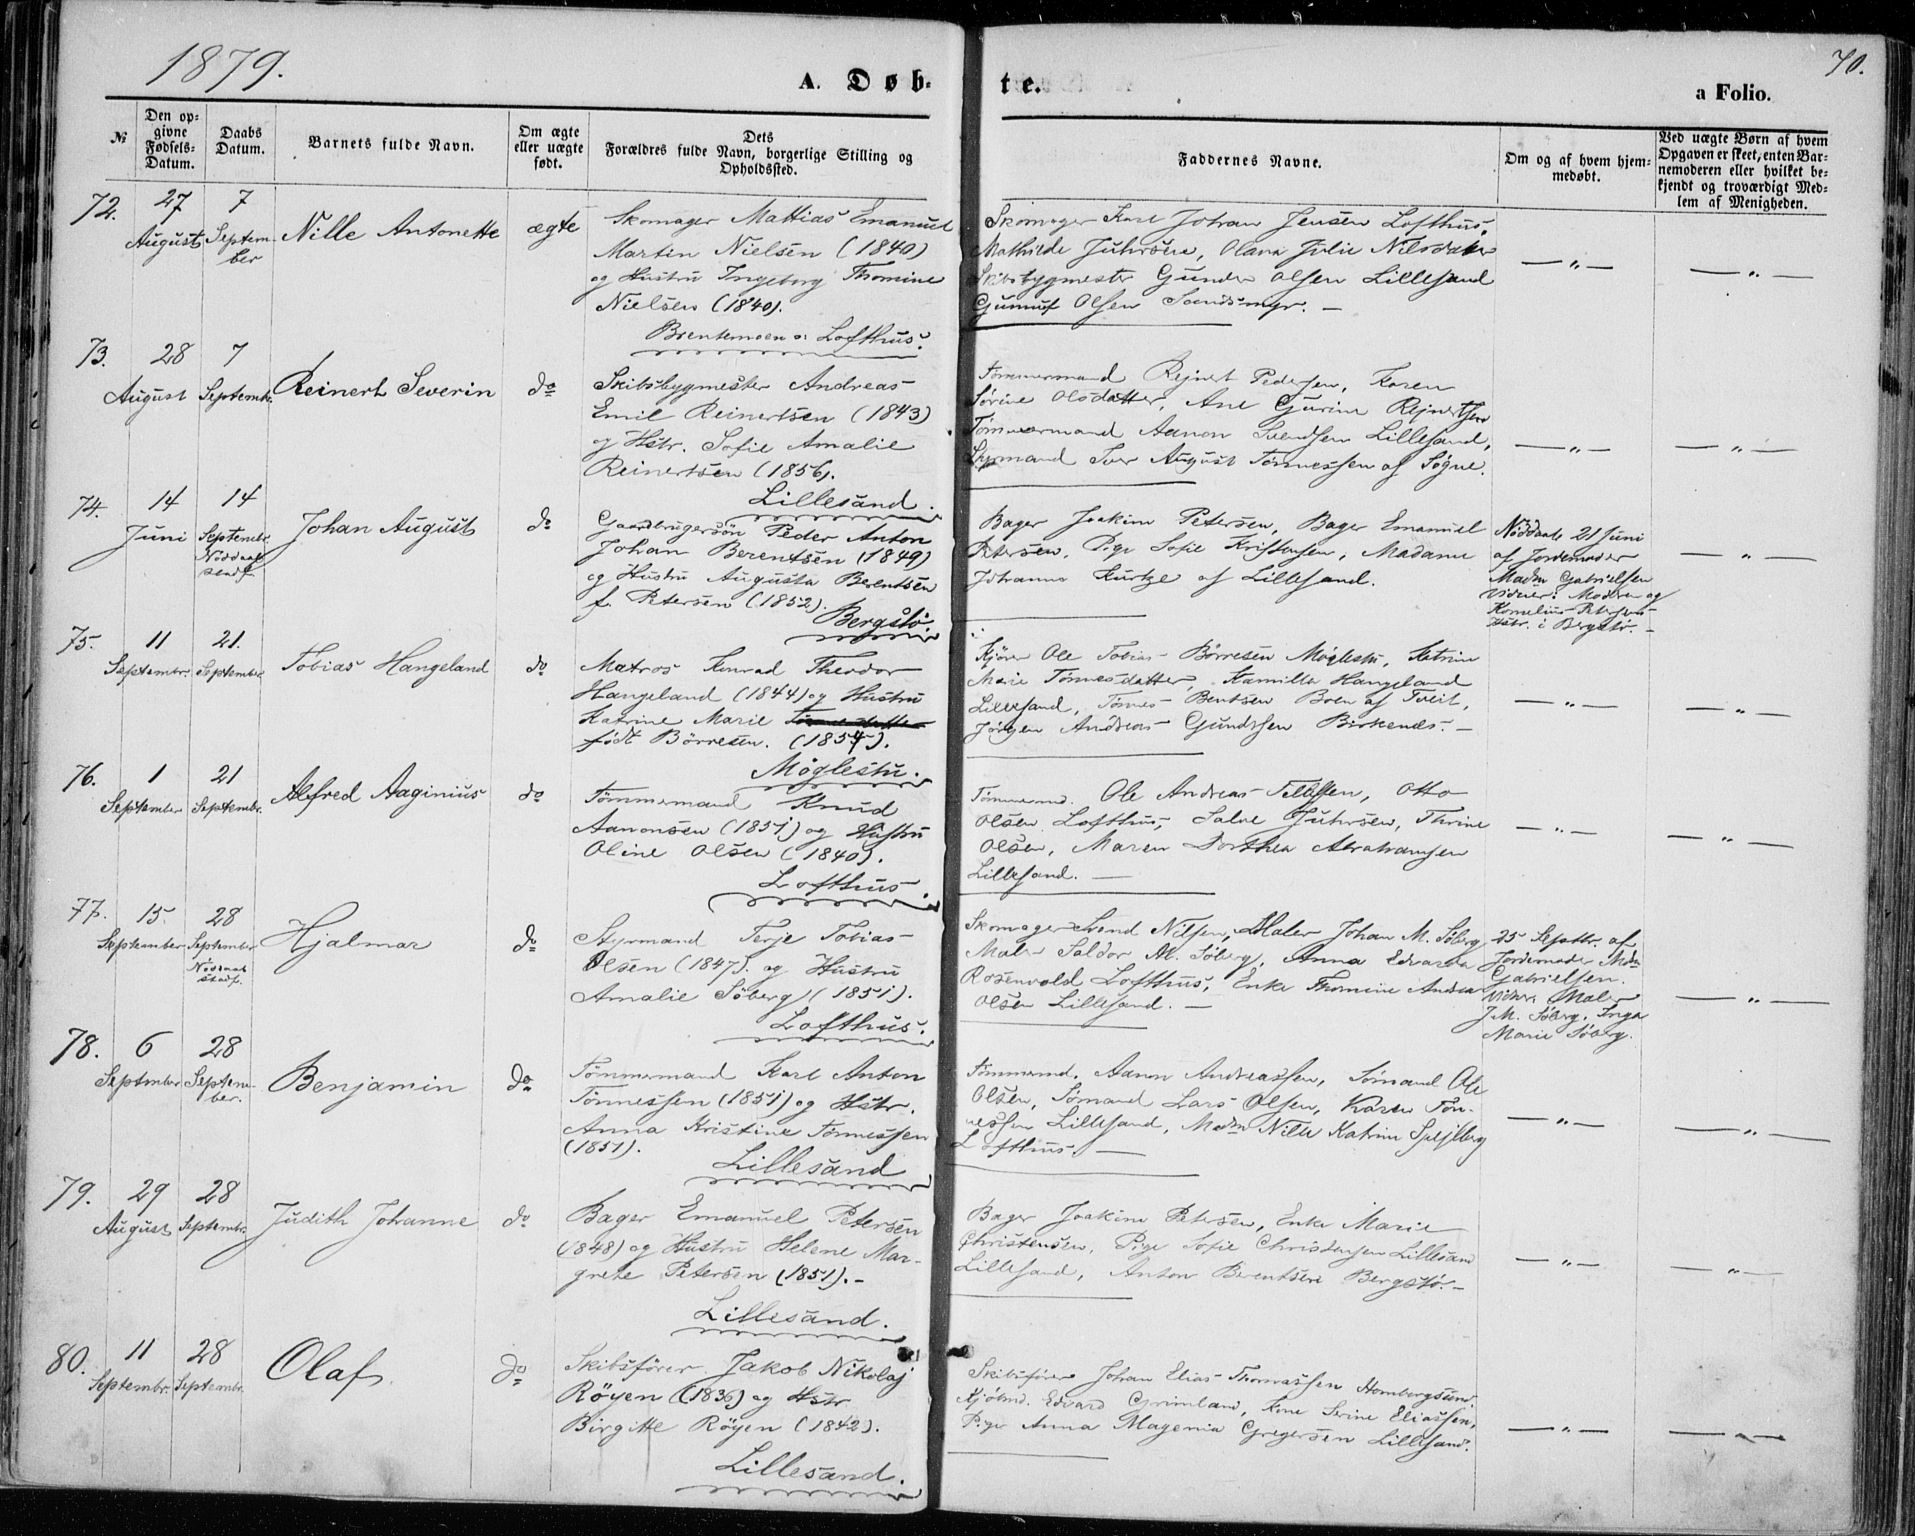 1879.
70.
A. Døb-
te.
a Folio.
№
Den op-
givne
Fødsels-
Datum.
Daabs
Datum.
Barnets fulde Navn.
Om ægte
eller uægte
født.
Dets
Forældres fulde Navn, borgerlige Stilling og
Opholdssted.
Faddernes Navne.
Om og af hvem hjem-
medøbt.
Ved uægte Børn af hvem
Opgaven er skeet, enten Bar-
nemoderen eller hvilket be-
kjendt og troværdigt Med-
lem af Menigheden.
72. 27 August 7 Septem-
ber
Nille Antonette
ægte
Skomager Mattias Emanuel
Martin Nielsen (1840)
og Hustru Ingeborg Thomine
Nielsen (1840).
Brentemoen o: Lofthus.
Skomager Karl Johan Jensen Lofthus,
Mathilde Juhrsene, Olava Julie Nilsdatter
Skibsbygmester Gunder Olsen Lillesand
Gunnuf Olsen Sandsmyr. —
— „ —
— „ —
73. 28 August 7 Septembr.
Reinert Severin
do
Skibsbygmester Andreas
Emil Reinertsen (1843)
og Hstr. Sofie Amalie
Reinertsen (1856).
Lillesand.
Tømmermand Rejnert Pedersen, Karen
Sørine Olsdatter, Ane Gurine Rejnertsen
Tømmermand Aanon Svendsen Lillesand,
Styrmand Iver August Tønnessen af Søgne.
— „ —
— „ —
74. 14 Juni 14 Septembr.
Nøddaab
stadf.
Johan August
do
Gaardbrugersøn Peder Anton
Johan Berentsen (1849)
og Hustru Augusta Berentsen
f. Petersen (1852).
Bergstø.
Bager Joakim Petersen, Bager Emanuel
Petersen, Pige Sofie Kristensen, Madame
Johanne Kurtze af Lillesand.
Nøddaab 21 Juni
af Jordemoder
Madm Gabrielsen
Vidner: Moderen og
Kornelius Petersens
Hstr. i Bergstø. —
— „ —
75. 11 Septembr. 21. September
Tobias Hangeland
do
Matros Konrad Theodor
Hangeland (1844) og Hustru
Katrine Marie Tønnesdatter
født Børresen. (1854).
Møglestu.
Kjører Ole Tobias Børresen Møglestu, Katrine
Marie Tønnesdatter, Kamilla Hangeland
Lillesand, Tønnes Bentsen Boen af Tveit,
Jørgen Andreas Gundersen Birkenes. —
— „ —
— „ —
76. 1 September 21 Septembr.
Alfred Aaginius
do
Tømmermand Knud
Aanonsen (1851) og Hustru
Oline Olsen (1840).
Lofthus.
Tømmermd. Ole Andreas Tellefsen, Otto
Olsen Lofthus, Salve Juhrsen, Thrine
Olsen, Maren Dorthea Abrahamsen
Lillesand. —
— „ —
— „ —
77. 15. September 28 September
Nøddaab
stadf.
Hjalmar
do
Styrmand Terje Tobias
Olsen (1847). og Hustru
Amalie Söberg (1851).
Lofthus.
Skomager Svend Nilsen, Maler Johan M. Søberg
Maler Saldor M. Søberg, Anna Edvarda
Rosenvold Lofthus, Enke Thomine Andrea
Olsen Lillesand. —
25 Septbr. af
Jordemoder Mdm
Gabrielsen.
Vidner. Maler
J.M. Søberg, Inga
Marie Søberg.
— „ —
78. 6 September 28 Septem-
ber.
Benjamin
do
Tømmermand Karl Anton
Tønnessen (1851) og Hstr.
Anna Kristine Tønnessen
(1851).
Lillesand
Tømmermd. Aanon Andreassen, Sømand Ole
Olsen, Sømand Lars Olsen, Karen Tøn-
nessen Lillesand, Mdm Nille Katrine Spejlberg
Lofthus. —
— „ —
— „ —
79. 29 August 28 Septembr.
Judith Johanne
do
Bager Emanuel Petersen
(1848) og Hustru Helene Mar-
grete Petersen (1851). —
Lillesand.
Bager Joakim Petersen, Enke Marie
Christensen, Pige Sofie Christensen Lillesand
Lillesand, Anton Berentsen Bergstø. —
— „ —
— „ —
80. 11 Septembr. 28 Septembr.
Olaf
do
Skibsfører Jakob Nikolaj
Røyen (1836) og Hstr
Birgitte Røyen (1842).
Lillesand.
Skibsfører Johan Elias Thomassen Homborgsund.
Kjøbmd. Edvard Grimland, Kone Serine Eliassen,
Pige Anna Magenia Gregersen Lillesand.
— „ —
— „ —